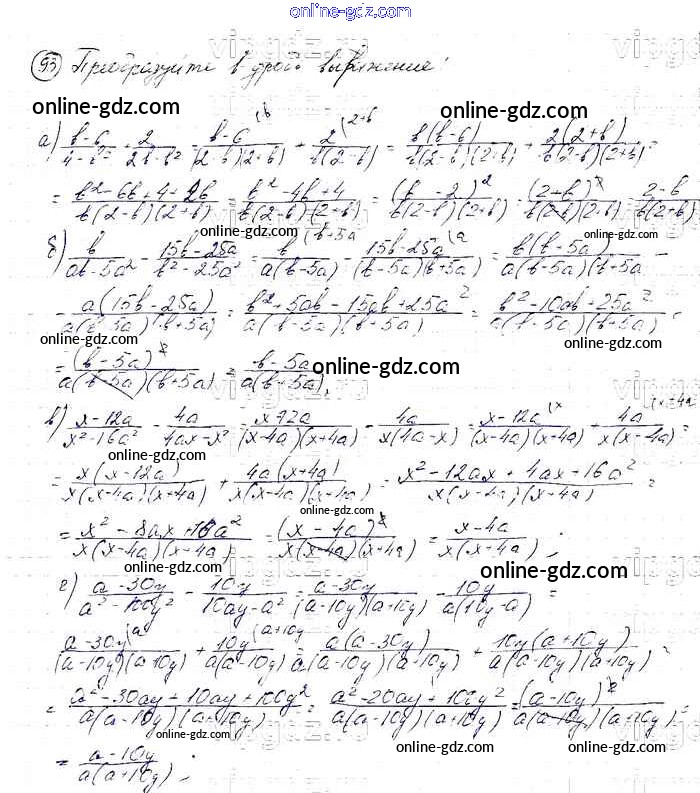 online-gdz.com
93) Преобразуйте в дробь выражение:
online-gdz.com
online-gdz.com
а) (b-6)/(4-b²) + 2/(2b-b²) = (b-6)/((2-b)(2+b)) (b + 2/(b(2-b)) (2+b = b(b-6)/(b(2-b)(2+b)) + 2(2+b)/(b(2-b)(2+b)) =
= (b²-6b+4+2b)/(b(2-b)(2+b)) = (b²-4b+4)/(b(2-b)(2+b)) = (b-2)²/(b(2-b)(2+b)) = (2-b)²/(b(2-b)(2+b)) = (2-b)/(b(2+b))
online-gdz.com
online-gdz.com
б) b/(ab-5a²) - (15b-25a)/(b²-25a²) = b/(a(b-5a)) (b+5a - (15b-25a)/((b-5a)(b+5a)) (a = b(b-5a)/(a(b-5a)(b+5a)) -
- a(15b-25a)/(a(b-5a)(b+5a)) = (b²+5ab-15ab+25a²)/(a(b-5a)(b+5a)) = (b²-10ab+25a²)/(a(b-5a)(b+5a)) =
online-gdz.com
online-gdz.com
= (b-5a)²/(a(b-5a)(b+5a)) = (b-5a)/(a(b+5a));
online-gdz.com
в) (x-12a)/(x²-16a²) - 4a/(4ax-x²) = (x-12a)/((x-4a)(x+4a)) - 4a/(x(4a-x)) = (x-12a)/((x-4a)(x+4a)) (x + 4a/(x(x-4a)) (x+4a =
online-gdz.com
= x(x-12a)/(x(x-4a)(x+4a)) + 4a(x+4a)/(x(x-4a)(x+4a)) = (x²-12ax+4ax+16a²)/(x(x-4a)(x+4a)) =
online-gdz.com
= (x²-8ax+16a²)/(x(x-4a)(x+4a)) = (x-4a)²/(x(x-4a)(x+4a)) = (x-4a)/(x(x+4a));
online-gdz.com
online-gdz.com
г) (a-30y)/(a²-100y²) - 10y/(10ay-a²) = (a-30y)/((a-10y)(a+10y)) - 10y/(a(10y-a)) =
(a-30y)/((a-10y)(a+10y)) (a + 10y/(a(a-10y)) (a+10y = a(a-30y)/(a(a-10y)(a+10y)) + 10y(a+10y)/(a(a-10y)(a+10y)) =
online-gdz.com
= (a²-30ay+10ay+100y²)/(a(a-10y)(a+10y)) = (a²-20ay+100y²)/(a(a-10y)(a+10y)) = (a-10y)²/(a(a-10y)(a+10y)) =
online-gdz.com
online-gdz.com
online-gdz.com
= (a-10y)/(a(a+10y));